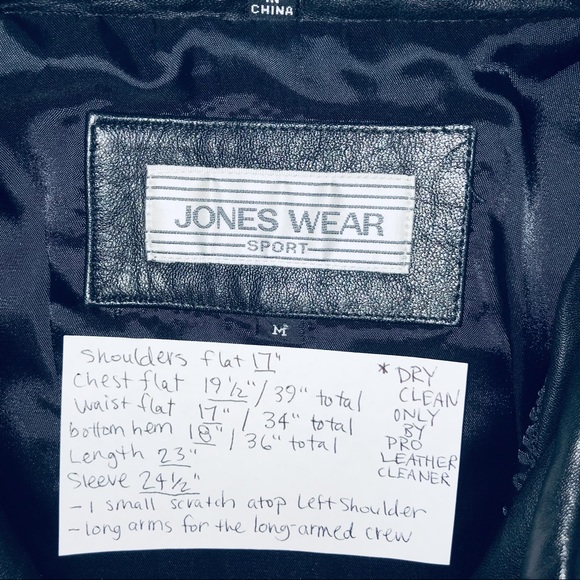 IN
CHINA
JONES WEAR
SPORT
M
Shoulders flat 17"
Chest flat 19 1/2" / 39" total
Waist flat 17" / 34" total
bottom hem 18" / 36" total
Length 23"
Sleeve 24 1/2"
- 1 small scratch atop Left Shoulder
- long arms for the long-armed crew
* DRY
CLEAN
ONLY
BY
PRO
LEATHER
CLEANER